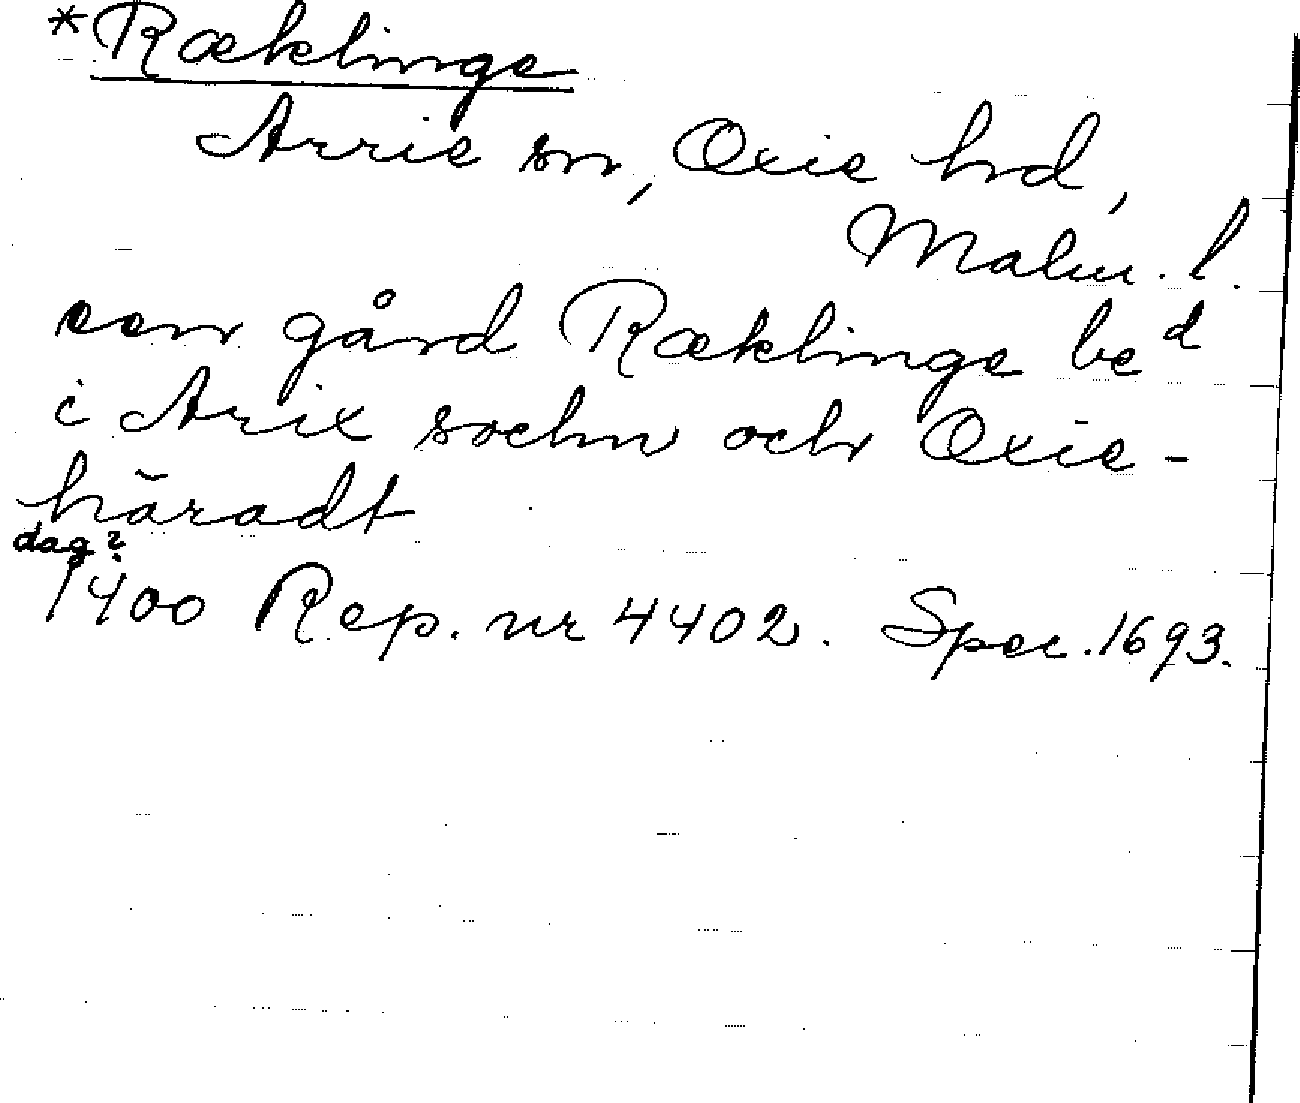 *Ræklinge
Arrie sn, Oxie hd,
Malm. l.
een gård Ræklinge be d
i Arix sochn och Oxie-
häradt
dag?
1400 Rep. nr 4402. Spec. 1693.